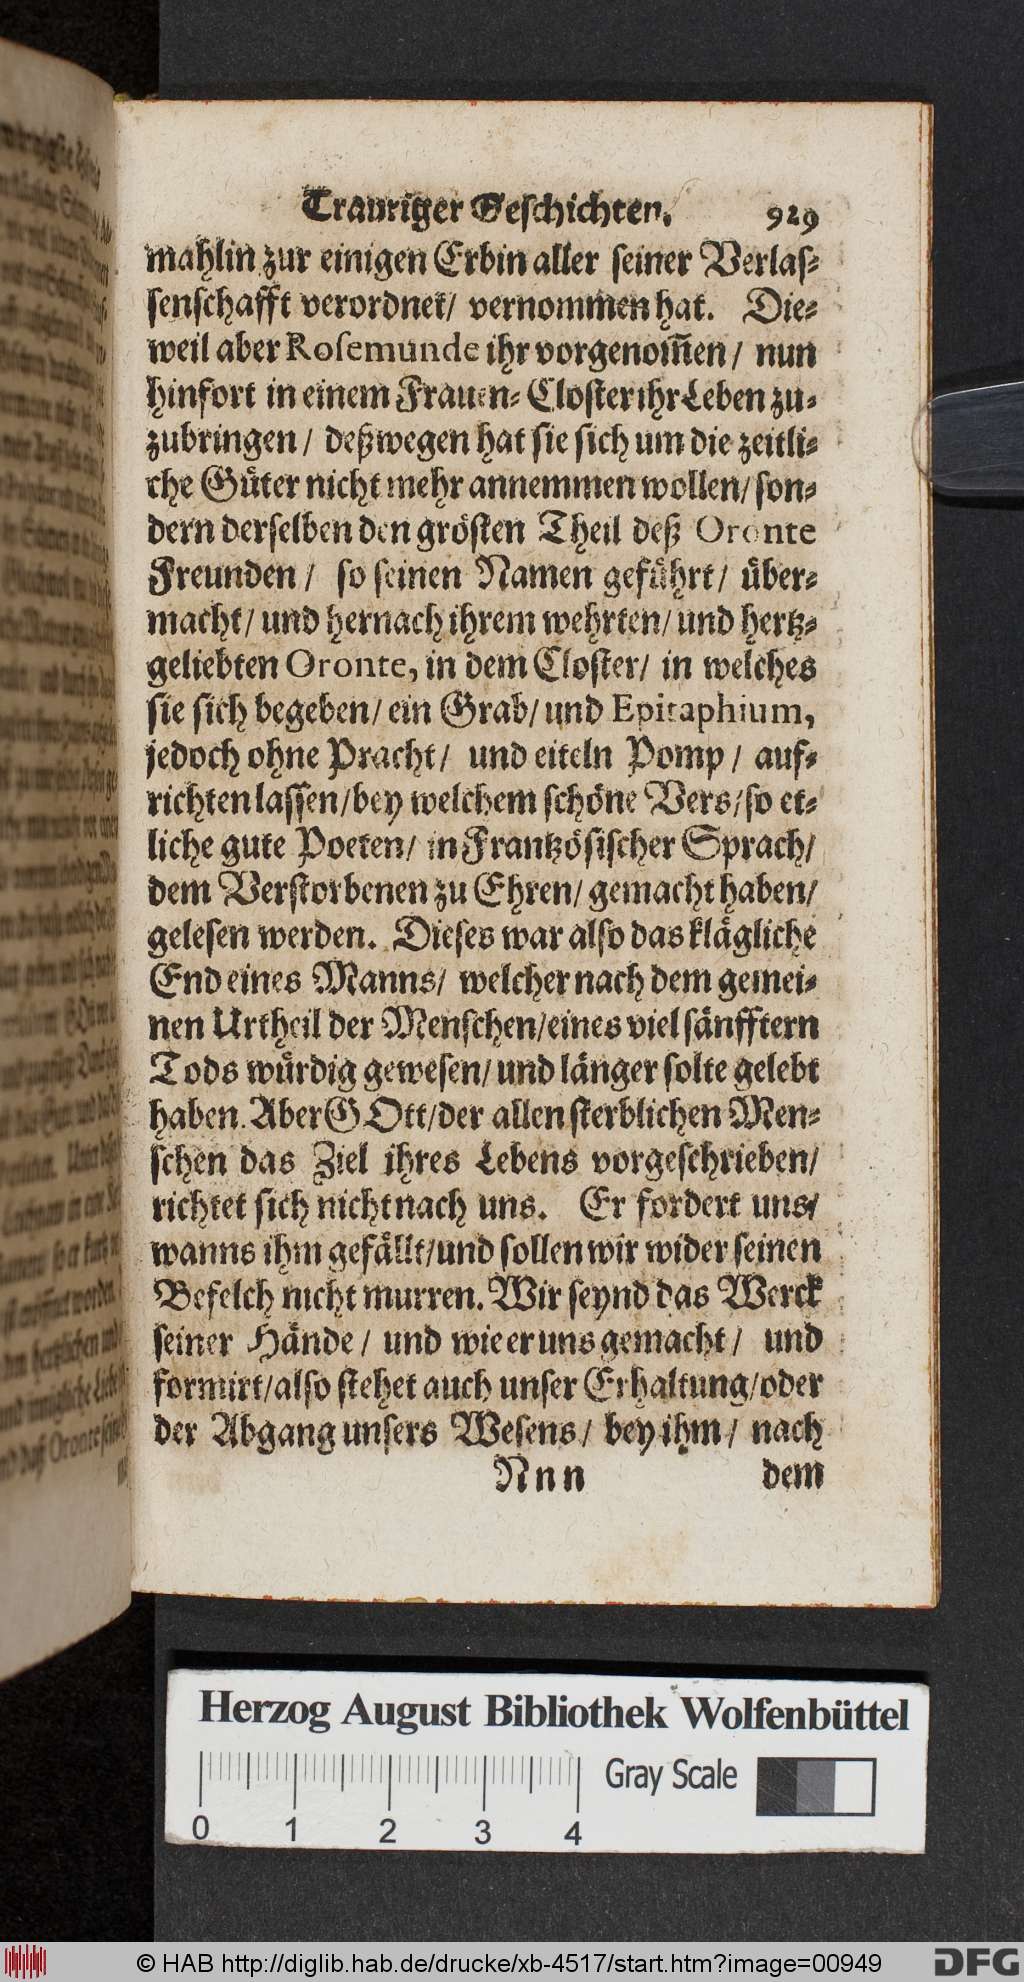 Trauriger Geschichten. 929
mahlin zur einigen Erbin aller seiner Verlas-
senschafft verordnet/ vernommen hat. Die-
weil aber Rosemunde ihr vorgenom̃en/ nun
hinfort in einem Frauen-Closter ihr Leben zu-
zubringen/ deßwegen hat sie sich um die zeitli-
che Güter nicht mehr annemmen wollen/ son-
dern derselben den grösten Theil deß Oronte
Freunden/ so seinen Namen geführt/ über-
macht/ und hernach ihrem wehrten/ und hertz-
geliebten Oronte, in dem Closter/ in welches
sie sich begeben/ ein Grab/ und Epitaphium,
jedoch ohne Pracht/ und eiteln Pomp/ auf-
richten lassen/ bey welchem schöne Vers/ so et-
liche gute Poeten/ in Frantzösischer Sprach/
dem Verstorbenen zu Ehren/ gemacht haben/
gelesen werden. Dieses war also das klägliche
End eines Manns/ welcher nach dem gemei-
nen Urtheil der Menschen/ eines viel sänfftern
Tods würdig gewesen/ und länger solte gelebt
haben. Aber GOtt/ der allen sterblichen Men-
schen das Ziel ihres Lebens vorgeschrieben/
richtet sich nicht nach uns. Er fordert uns/
wanns ihm gefällt/ und sollen wir wider seinen
Befelch nicht murren. Wir seynd das Werck
seiner Hände/ und wie er uns gemacht/ und
formirt/ also stehet auch unser Erhaltung/ oder
der Abgang unsers Wesens/ bey ihm/ nach
Nnn dem
Herzog August Bibliothek Wolfenbüttel
Gray Scale
0 1 2 3 4
© HAB http://diglib.hab.de/drucke/xb-4517/start.htm?image=00949
DFG